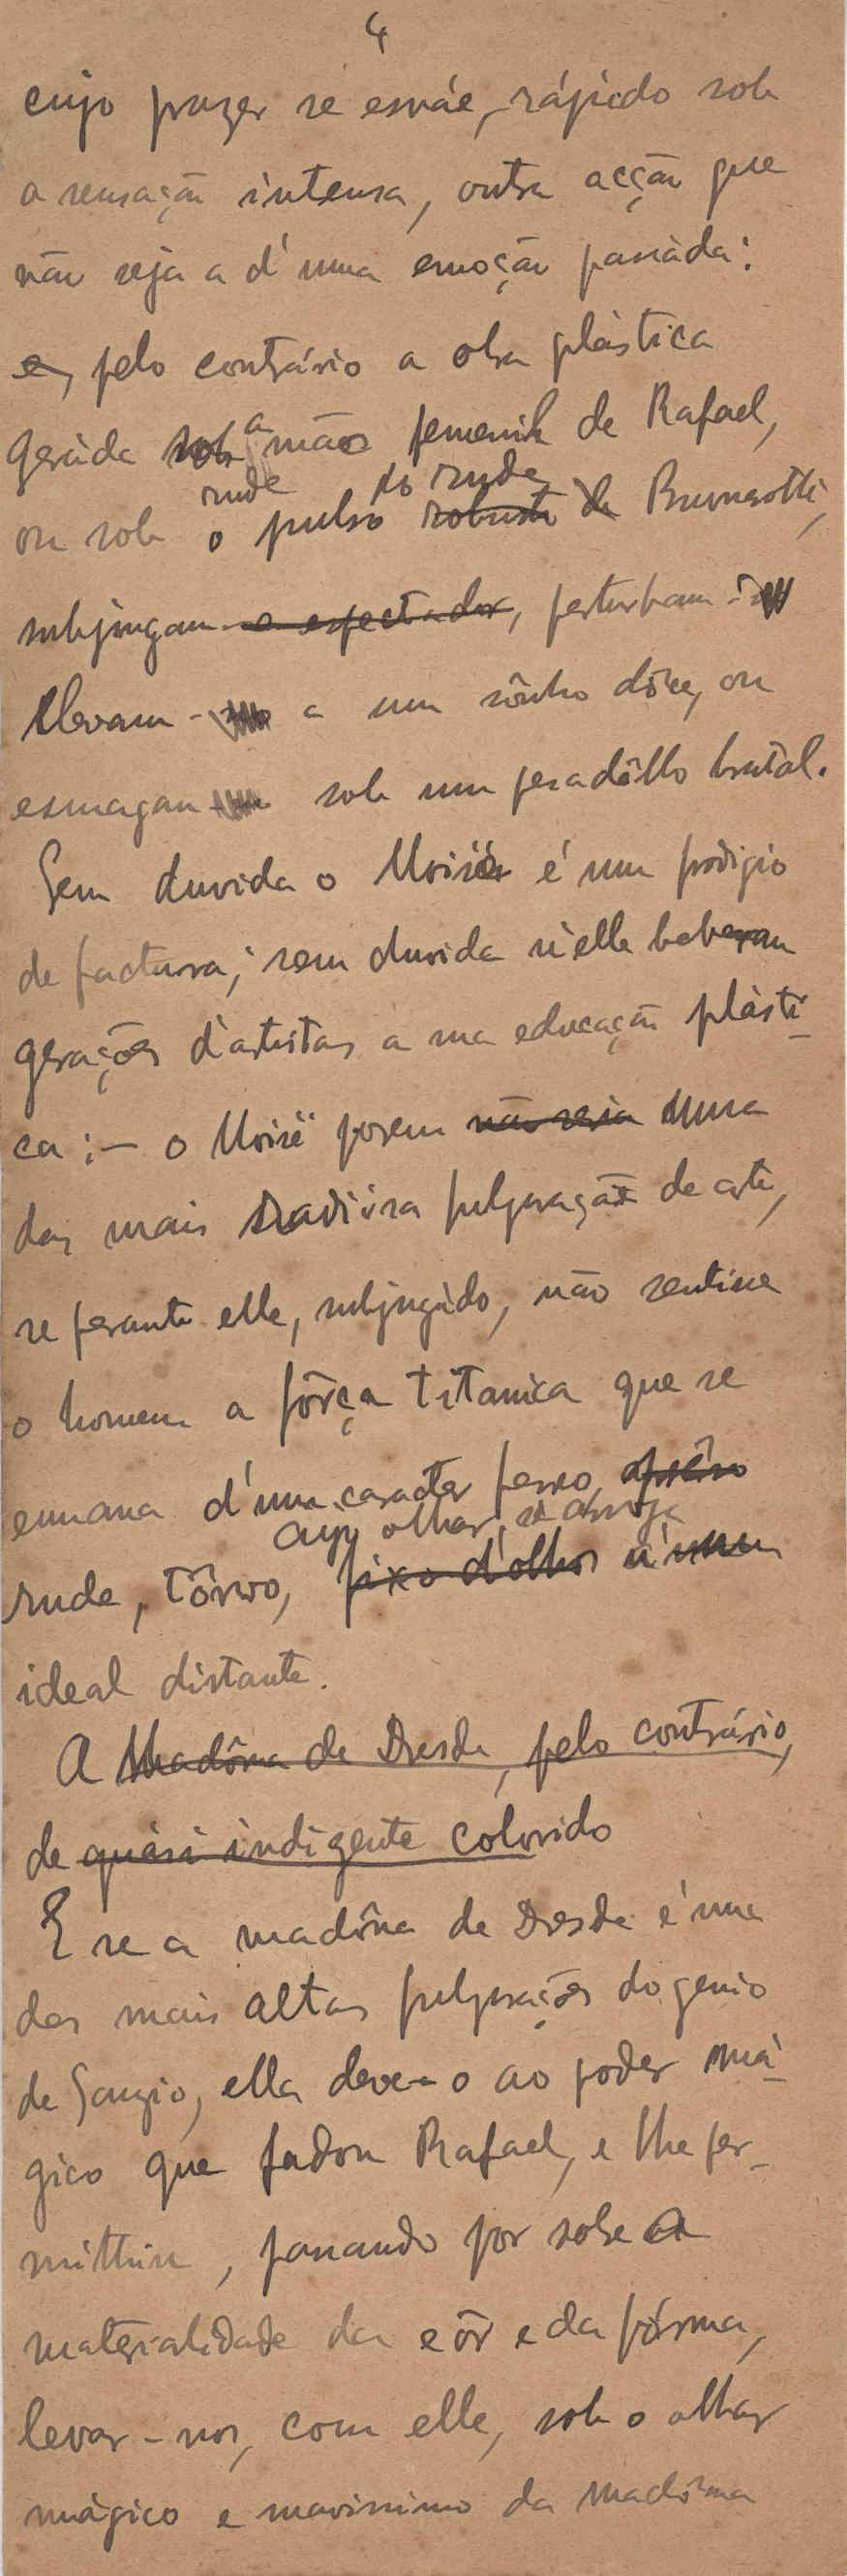 4
cujo prazer se esváe, rápido sob
a sensação intensa, outra acção que
não seja a d'uma emoção passàda:
e, pelo contrário a obra plàstica
geràda sob a mão femenil de Rafael,
rude do rude
ou sob o pulso robusto de Buonarotti,
subjugam o espectador, perturbam-
elevam- a um sônho dôce, ou
esmagam sob um pesadêllo brutàl.
Sem duvida o Moisés é um prodigio
de factura; sem duvida n'elle beberam
gerações d'artistas a sua educação plàsti-
ca:- o Moisë porem não seria numa
das mais fulguração de arte,
se perante elle, subjugàdo, não sentisse
o homem a fôrça titanica que se
emana d'um caracter ferreo,
cujo olhar se arroja
rude, tôrvo, fixo d'olhos n'um
ideal distante.
A Madôna de Dresde, pelo contrário,
de quàsi indigente colorido
E se a madôna de Dresde é uma
das mais altas fulgurações do genio
de Sanzio, ella deve-o ao poder má-
gico que fadou Rafael, e lhe per-
mittiu, passando por sobre a
materialidade da côr e da fórma,
levar-nos, com elle, sob o olhar
mágico e mavissimo da madôna